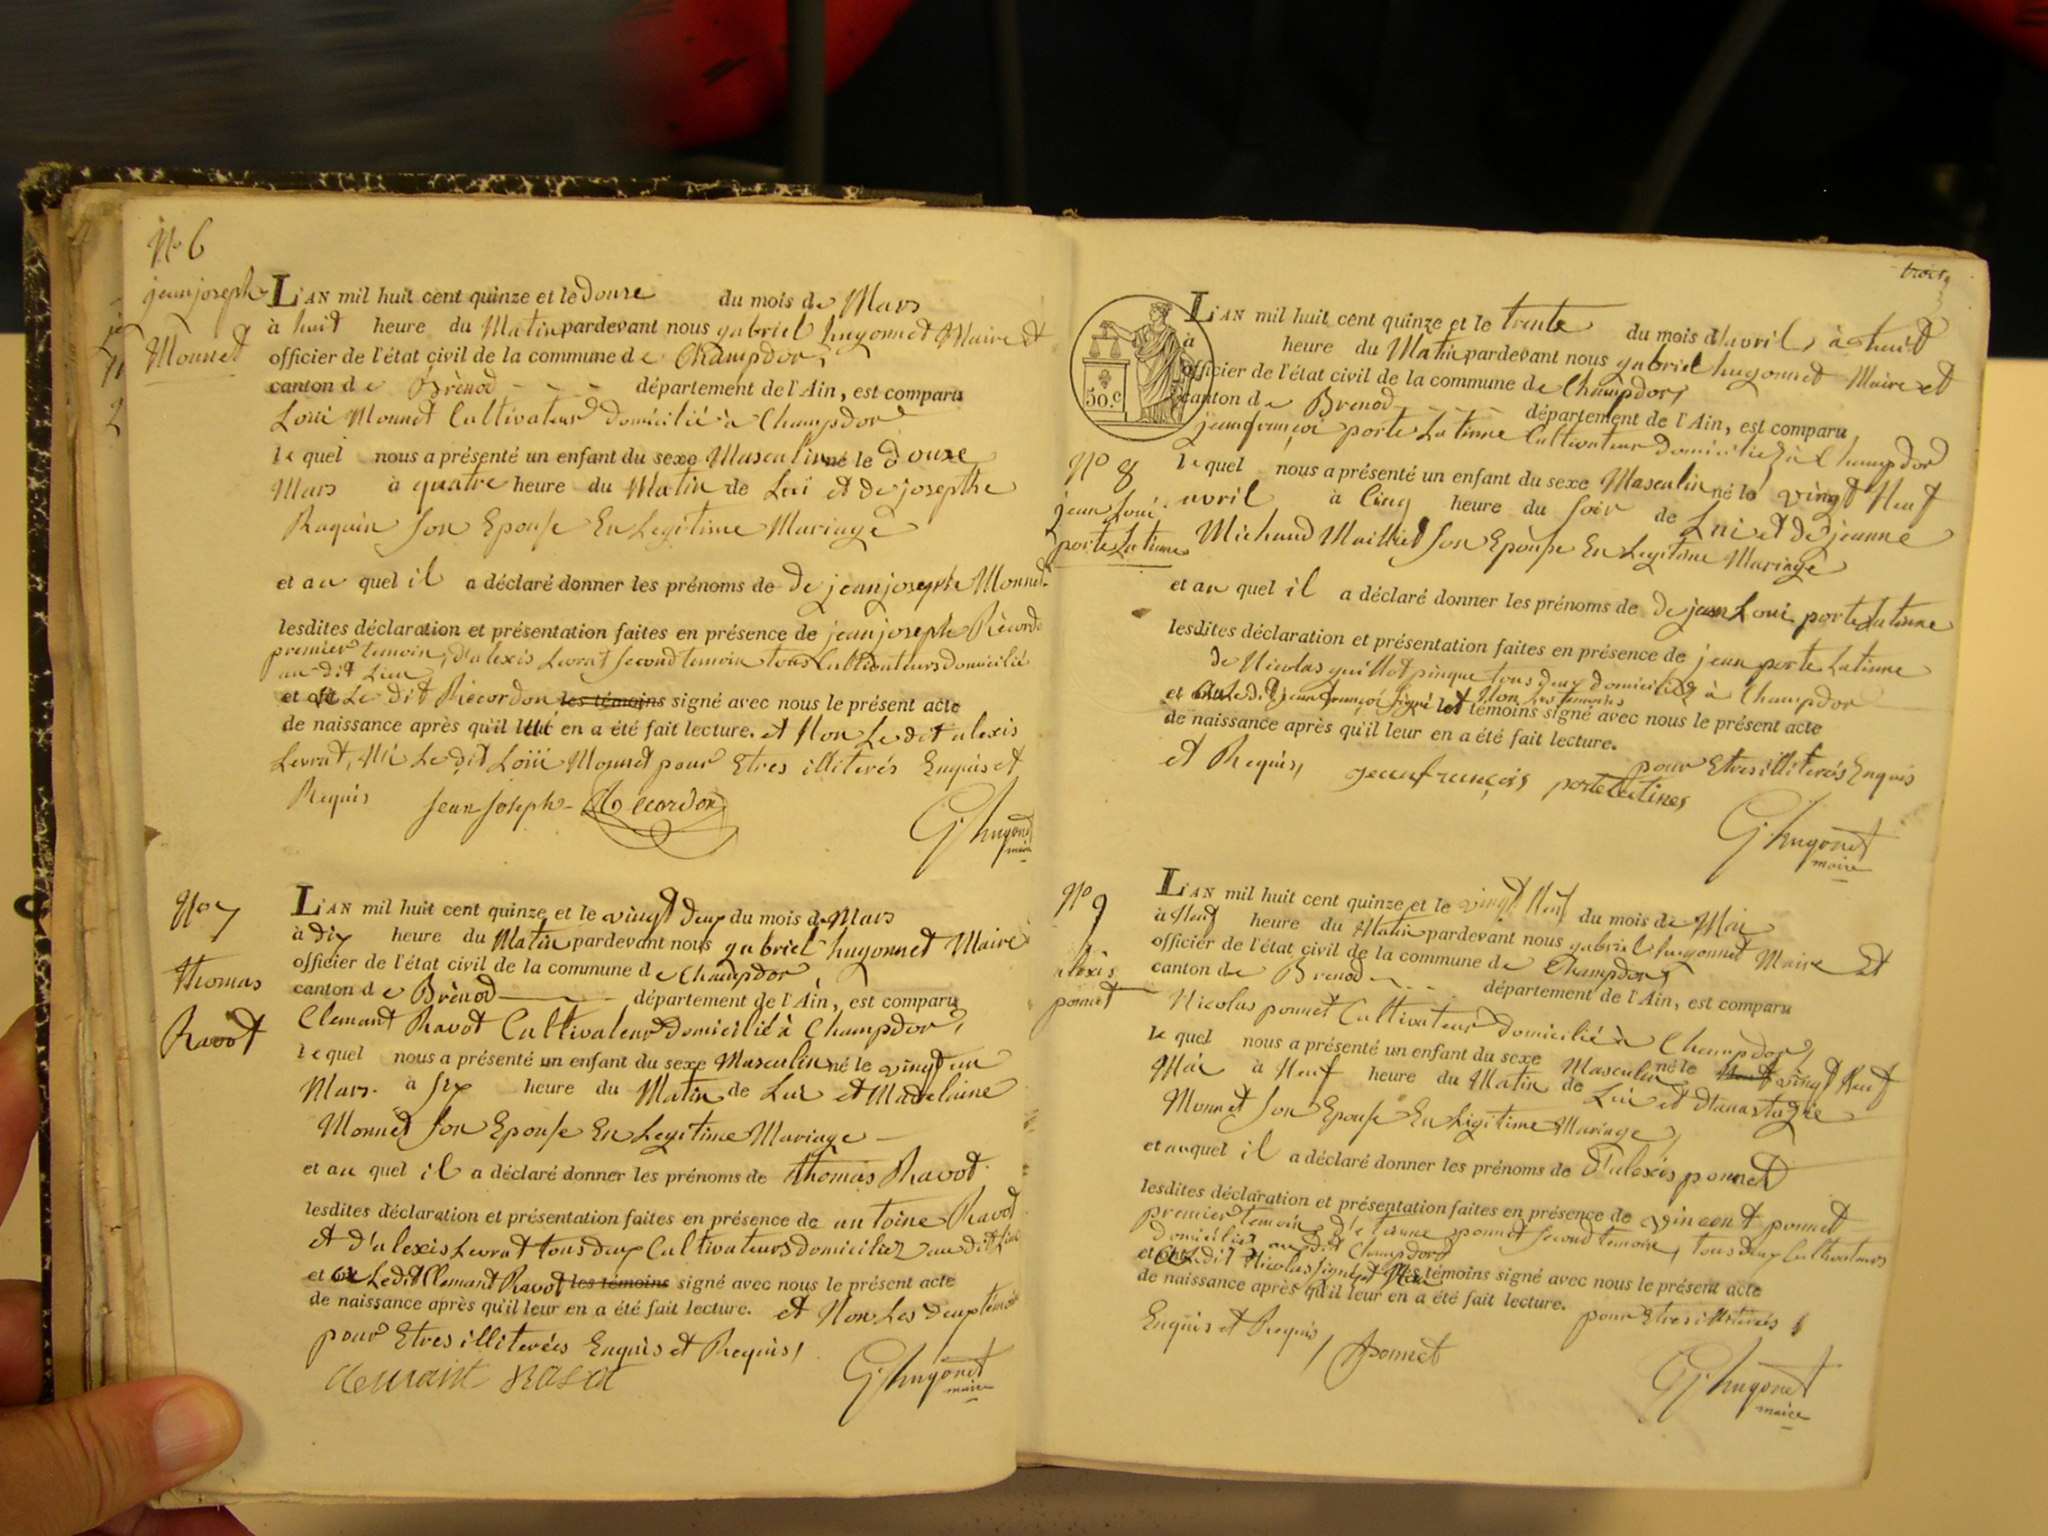 N° 6
jean joseph
Monnet
L'AN mil huit cent quinze et le douze du mois de Mars
à huit heure du Matin pardevant nous gabriel hugonnet Maire et
officier de l'état civil de la commune de Champdor,
canton de Brènod département de l'Ain, est comparu
Loui Monnet Cultivateur domicilié à Champdor
le quel nous a présenté un enfant du sexe Masculin né le douze
Mars à quatre heure du Matin de Lui et de josepthe
Raquin son Epouse En Legitime Mariage
et au quel il a déclaré donner les prénoms de de jean joseph Monnet
lesdites déclaration et présentation faites en présence de jean joseph Récordon
premier temoin, d'alexis Levrat second temoin tous Cultivateurs domicilié
au dit Lieu
et Le dit Récordon les témoins signé avec nous le présent acte
de naissance après qu'il lui en a été fait lecture. et Non Le dit alexis
Levrat, Ni Le dit Loüi Monnet pour Etres illiterés Enquis et
Requis Jean Joseph Recordon
G. hugonet
maire
N° 7
Thomas
Ravot
L'AN mil huit cent quinze et le vingt deux du mois de Mars
à dix heure du Matin pardevant nous gabriel hugonnet Maire
officier de l'état civil de la commune de Champdor,
canton de Brènod département de l'Ain, est comparu
Clemant Ravot Cultivateur domicilié à Champdor,
le quel nous a présenté un enfant du sexe Masculin né le vingt un
Mars à six heure du Matin de Lui et Madelaine
Monnet son Epouse En Legitime Mariage
et au quel il a déclaré donner les prénoms de Thomas Ravot
lesdites déclaration et présentation faites en présence de antoine Ravot
et d'alexis Levrat tous deux Cultivateurs domiciliez au dit Lieu
et Le dit Clemant Ravot les témoins signé avec nous le présent acte
de naissance après qu'il leur en a été fait lecture. et Non Les deux témoins
pour Etres illiterés Enquis et Requis,
clemant ravot G. hugonet
maire
trois
3
50.c
N° 8
jean Loui
porte Latinne
L'AN mil huit cent quinze et le trente du mois d'avril, à huit
à heure du Matin pardevant nous gabriel hugonnet Maire et
officier de l'état civil de la commune de Champdor,
canton de Brenod département de l'Ain, est comparu
jean françoi porte Latinne Cultivateur domiciliez à Champdor
le quel nous a présenté un enfant du sexe Masculin né le vingt Neuf
avril à Cinq heure du soir de Lui et de jeanne
Michaud Maillet son Epouse En Legitime Mariage
et au quel il a déclaré donner les prénoms de de jean Loui porte Latinne
lesdites déclaration et présentation faites en présence de jean porte Latinne
de Nicolas guillot pinque tous deux domiciliez à Champdor
et Le dit jean françoi signé et Non Les temoins témoins signé avec nous le présent acte
de naissance après qu'il leur en a été fait lecture.
pour Etres illiterés Enquis
et Requis, jean françois porte Latines
G. hugonet
maire
N° 9
alexis
ponnet
L'AN mil huit cent quinze et le vingt Neuf du mois de Mai
à Neuf heure du Matin pardevant nous gabriel hugonnet Maire et
officier de l'état civil de la commune de Champdor,
canton de Brenod département de l'Ain, est comparu
Nicolas ponnet Cultivateur domicilié à Champdor,
le quel nous a présenté un enfant du sexe Masculin né le vingt Neuf
Mai à Neuf heure du Matin de Lui et d'anastazie
Monnet son Epouse En Legitime Mariage,
et auquel il a déclaré donner les prénoms de d'alexis ponnet
lesdites déclaration et présentation faites en présence de vincent ponnet
premier temoin, d'etienne ponnet second temoin, tous deux Cultivateurs
domiciliez au dit Champdor
et Le dit Nicolas signé et Non les témoins signé avec nous le présent acte
de naissance après qu'il leur en a été fait lecture. pour Etres illiterés
Enquis et Requis, ponnet
G. hugonet
maire